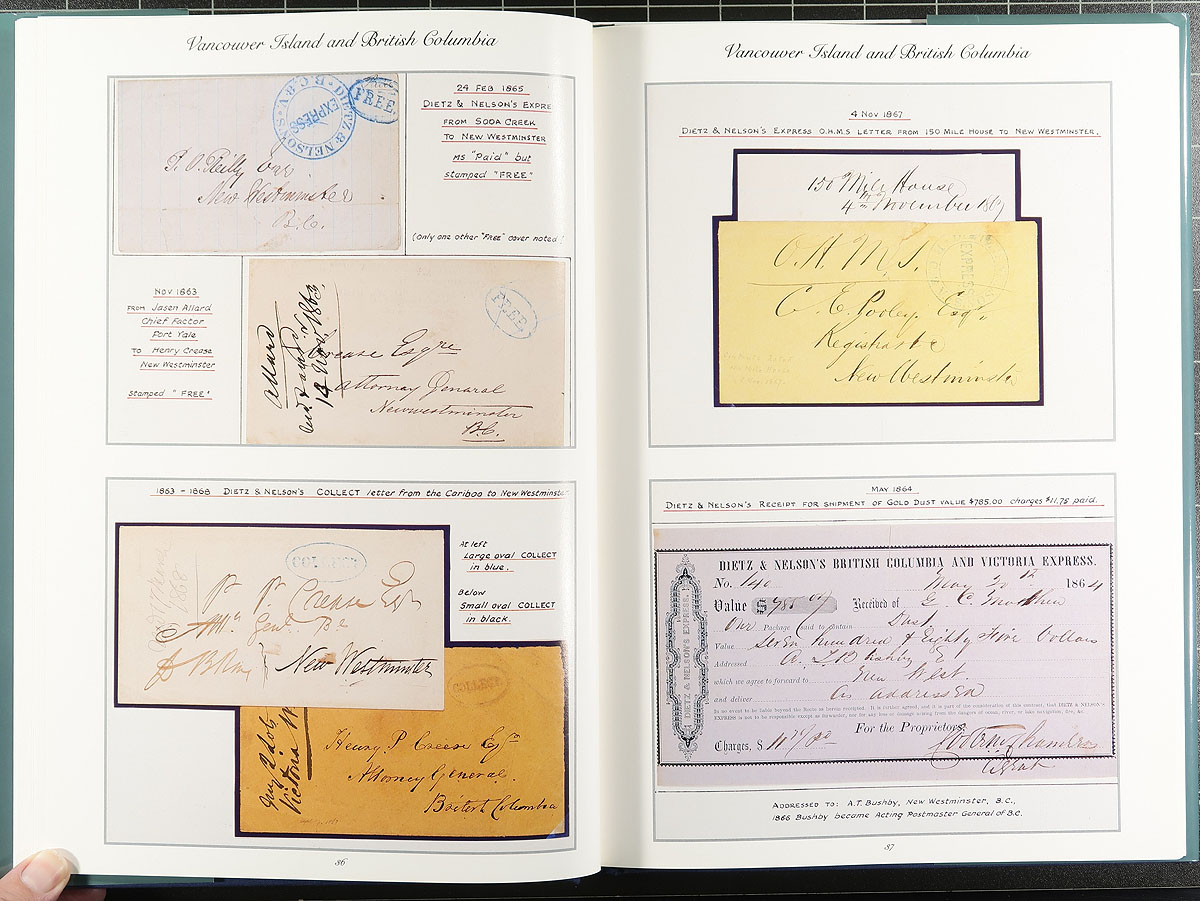 Vancouver Island and British Columbia
24 FEB 1865
DIETZ & NELSON'S EXPRE
FROM SODA CREEK
TO NEW WESTMINSTER
MS "Paid" but
stamped "FREE"
(Only one other "FREE" cover noted!
DIETZ & NELSON'S B.C. & V.I.
EXPRESS
FREE.
New Westminster
B.C.
NOV 1863
FROM Jasen Allard
Chief Factor
Fort Yale
TO Henry Crease
New Westminster
stamped "FREE"
Allard
14 Nov. 1863
FREE.
Crease Esqre
Attorney General
Newwestminster
B.C.
1863 - 1868 DIETZ & NELSON'S COLLECT letter from the Cariboo to New Westminste
At left
Large oval COLLECT
in blue.
Below
Small oval COLLECT
in black.
COLLECT
Crease Esq
Genl
New Westminster
COLLECT
Victoria
Henry P Crease Esqr
Attorney General.
Colombia
36
Vancouver Island and British Columbia
4 NOV 1867
DIETZ & NELSON'S EXPRESS O.H.M.S LETTER FROM 150 MILE HOUSE TO NEW WESTMINSTER.
150 Mile House
4th November 1867
EXPRESS
O.H.M.S.
C. E. Pooley, Esqr.
Registrar
New Westminster
MAY 1864
DIETZ & NELSON'S RECEIPT FOR SHIPMENT OF GOLD DUST VALUE $785.00 charges $11.75 paid.
DIETZ & NELSON'S EXPRESS.
DIETZ & NELSON'S BRITISH COLUMBIA AND VICTORIA EXPRESS.
No. 140 May 1864
Value $785 Received of
One Package said to contain Dust
Value Seven hundred & Eighty Five Dollars
Addressed
which we agree to forward to New West.
and deliver as addressed
In no event to be liable beyond the Route as herein receipted. It is further agreed, and it is part of the consideration of this contract, that DIETZ & NELSON'S
EXPRESS is not to be responsible except as forwarder, nor for any loss or damage arising from the dangers of ocean, river, or lake navigation, fire, &c.
For the Proprietors,
Charges, $ 11
Agent
ADDRESSED TO: A.T. BUSHBY, NEW WESTMINSTER, B.C.,
1866 BUSHBY BECAME ACTING POSTMASTER GENERAL OF B.C.
37